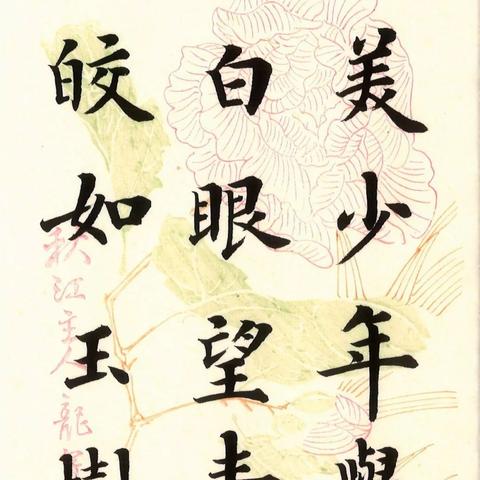 美少年
白眼望
皎如玉
秋江主人龍